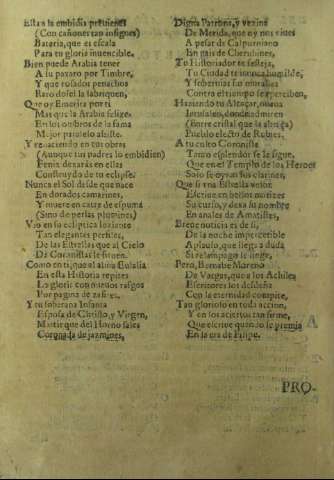 Esta a la embidia preuienes
(Con cañones tan insignes)
Bateria, que es escala
Para tu gloria inuencible.
Bien puede Arabia tener
A su paxaro por Timbre,
Y que rosados penachos
Raro dosel la fabriquen,
Que oy Emerita por ti
Mas que la Arabia felize
En los ombros de la fama
Mejor paralelo assiste.
Y renaciendo en tus obras
(Aunque tus padres lo embidien)
Fenix dexaràs en ellas
Construydo de tu eclipse.
Nunca el Sol desde que nace
En dorados camarines,
Y muere en catre de espuma
(Sino de perlas plumines)
Viò en su ecliptica loziano
Tan elegantes perfiles,
De las Estrellas que al Cielo
De Coronistas le siruen.
Como en ti, que al alua Eulalia
En esta Historia repites
Lo gloria con nueuos rasgos
Por pagina de zafires.
Y tu soberana Infanta
Esposa de Christo, y Virgen,
Martir que del Horno sales
Coronada de jazmines,
Digna Patrona, y vezina
De Merida, que oy nos viues
A pesar de Calpurniano
En pais de Cherubines,
Tu Historiador te festeja,
Tu Ciudad te inuoca humilde,
Y soberuias sus murallas
Contra el tiempo se aperciben,
Haziendo tu Alcaçar, nueua
Jerusalen, donde admiren
(Entre cristal que la abriga)
Pueblo electo de Rubies,
A tu culto Coronista
Tanto esplendor se le sigue,
Que en el Templo de los Heroes
Solo se oyan sus clarines,
Que si vna Estrella veloz
Escriue en bellos matizes
Su curso, y dexa su nombre
En anales de Amatistes,
Breue noticia es de si,
De la noche imperceptible
Aplauso, que llega a duda
Si relampago se finge,
Pero, Bernabe Moreno
De Vargas, que a los Achiles
Escritores los desdeña
Con la eternidad compite,
Tan glorioso en toda accion,
Y en los aciertos tan firme,
Que escriue quando le premia
En la era de Filipe.
PRO-